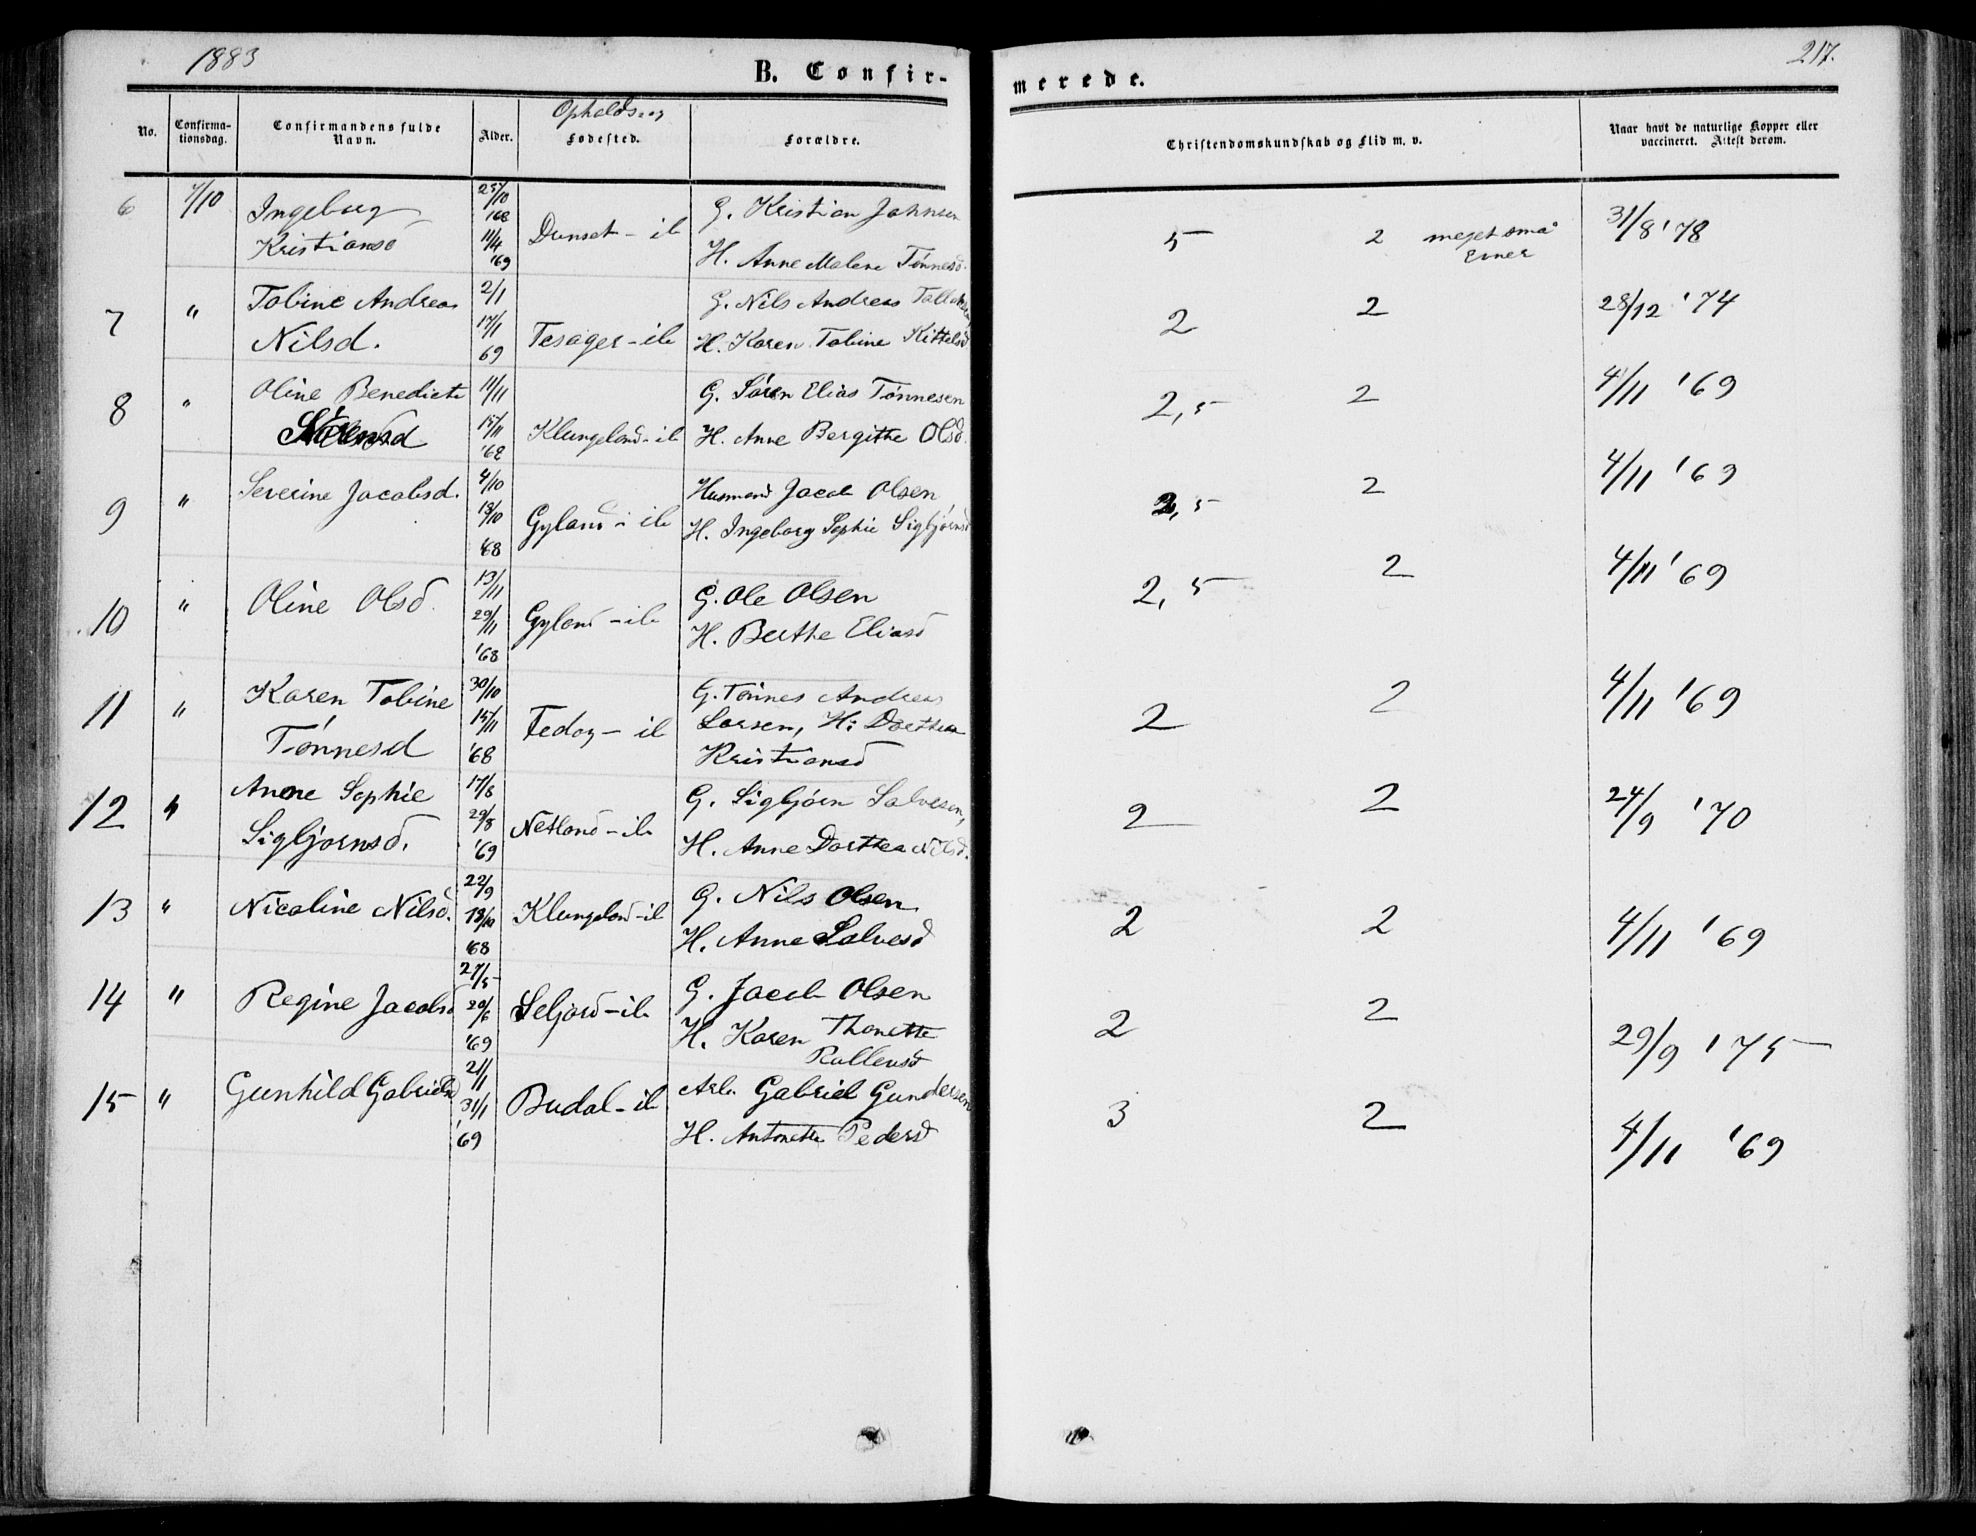 1883
217.
B. Confir-
merede.
No.
Confirma-
tionsdag.
Confirmandens fulde
Navn.
Alder.
Opholds og
Fødested.
Forældre.
Christendomskundskab og Flid m. v.
Naar havt de naturlige Kopper eller
vaccineret. Attest derom.
6 7/10 Ingeborg 25/10 '68 G. Kristian Johnsen
Kristiansd 11/4 '69 Dunset - ib H. Anne Malene Tønnesd.
5 2 meget små 31/8 '78
Evner
7 " Tobine Andrea 2/1 G. Nils Andreas
Nilsd. 17/1 69 Tesager - ib H. Karen Tobine Kittelsd
2 2 28/12 '74
8 " Oline Benedicte 11/11 G. Søren Elias Tønnesen
Sørensd 15/11 '68 Klungeland - ib H. Anne Bergithe Olsd.
2,5 2 4/11 '69
9 " Severine Jacobsd. 4/10 Husmand Jacob Olsen
18/10 '68 Gyland - ib H. Ingeborg Sophie Sigbjørnsd
2,5 2 4/11 '69
10 " Oline Olsd. 13/11 G. Ole Olsen
29/11 '68 Gyland - ib H. Berthe Eliasd
2,5 2 4/11 '69
11 " Karen Tobine 30/10 G. Tønnes Andreas
15/11 Fedog - ib Larsen, H: Dorthea
Tønnesd '68 Kristiansd
2 2 4/11 '69
12 " Anne Sophie 17/8 G. Sigbjørn Salvesen,
Sigbjørnsd. 29/8 '69 Netland - ib H. Anne Dorthea Nilsd.
2 2 24/9 '70
13 " Nicoline Nilsd. 22/9 G. Nils Olsen
18/10 '68 Klungeland - ib H. Anne Salvesd
2 2 4/11 '69
14 " Regine Jacobsd 27/5 G. Jacob Olsen
20/6 '69 Seljord - ib H. Karen Thonette
Rallensd
2 2 29/9 '75
15 " Gunhild Gabrielsd 21/1 Arb. Gabriel Gundersen
31/1 '69 Budal - ib H. Antonette Pedersd
3 2 4/11 '69